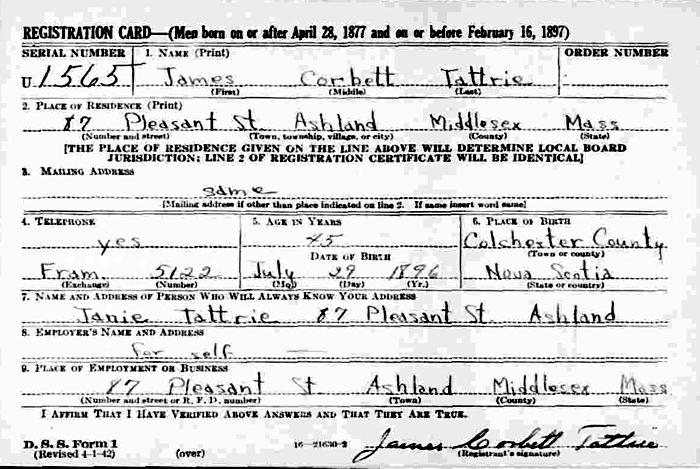 REGISTRATION CARD—(Men born on or after April 28, 1877 and on or before February 16, 1897)
SERIAL NUMBER 1. NAME (Print) ORDER NUMBER
U 1565 James Corbett Tattrie
(First) (Middle) (Last)
2. PLACE OF RESIDENCE (Print)
87 Pleasant St Ashland Middlesex Mass
(Number and street) (Town, township, village, or city) (County) (State)
[THE PLACE OF RESIDENCE GIVEN ON THE LINE ABOVE WILL DETERMINE LOCAL BOARD
JURISDICTION; LINE 2 OF REGISTRATION CERTIFICATE WILL BE IDENTICAL]
3. MAILING ADDRESS
same
[Mailing address if other than place indicated on line 2. If same insert word same]
4. TELEPHONE 5. AGE IN YEARS 6. PLACE OF BIRTH
yes 45 Colchester County
DATE OF BIRTH (Town or county)
Fram 5122 July 29 1896 Nova Scotia
(Exchange) (Number) (Mo.) (Day) (Yr.) (State or country)
7. NAME AND ADDRESS OF PERSON WHO WILL ALWAYS KNOW YOUR ADDRESS
Janie Tattrie 87 Pleasant St. Ashland
8. EMPLOYER'S NAME AND ADDRESS
for self
9. PLACE OF EMPLOYMENT OR BUSINESS
87 Pleasant St Ashland Middlesex Mass
(Number and street or R. F. D. number) (Town) (County) (State)
I AFFIRM THAT I HAVE VERIFIED ABOVE ANSWERS AND THAT THEY ARE TRUE.
D. S. S. Form 1 16—21630-2 James Corbett Tattrie
(Revised 4-1-42) (over) (Registrant's signature)